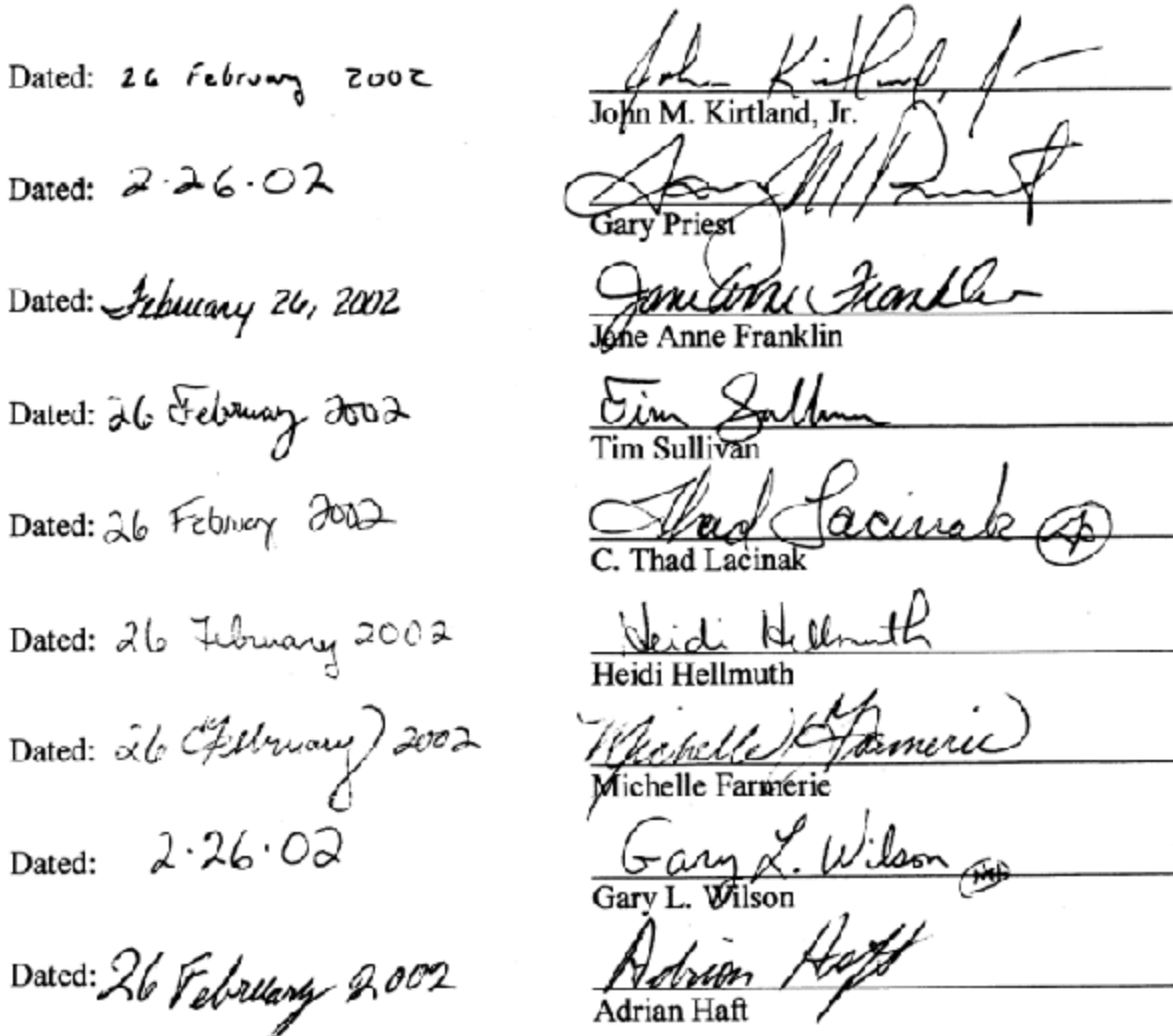 Dated: 26 February 2002 John Kirtland, Jr
John M. Kirtland, Jr.
Dated: 2·26·02 Gary M Priest
Gary Priest
Dated: February 26, 2002 Jane Anne Franklin
Jane Anne Franklin
Dated: 26 February 2002 Tim Sullivan
Tim Sullivan
Dated: 26 February 2002 Thad Lacinak
C. Thad Lacinak
Dated: 26 February 2002 Heidi Hellmuth
Heidi Hellmuth
Dated: 26 February 2002 Michelle Farmerie
Michelle Farmerie
Dated: 2·26·02 Gary L. Wilson
Gary L. Wilson
Dated: 26 February 2002 Adrian Haft
Adrian Haft